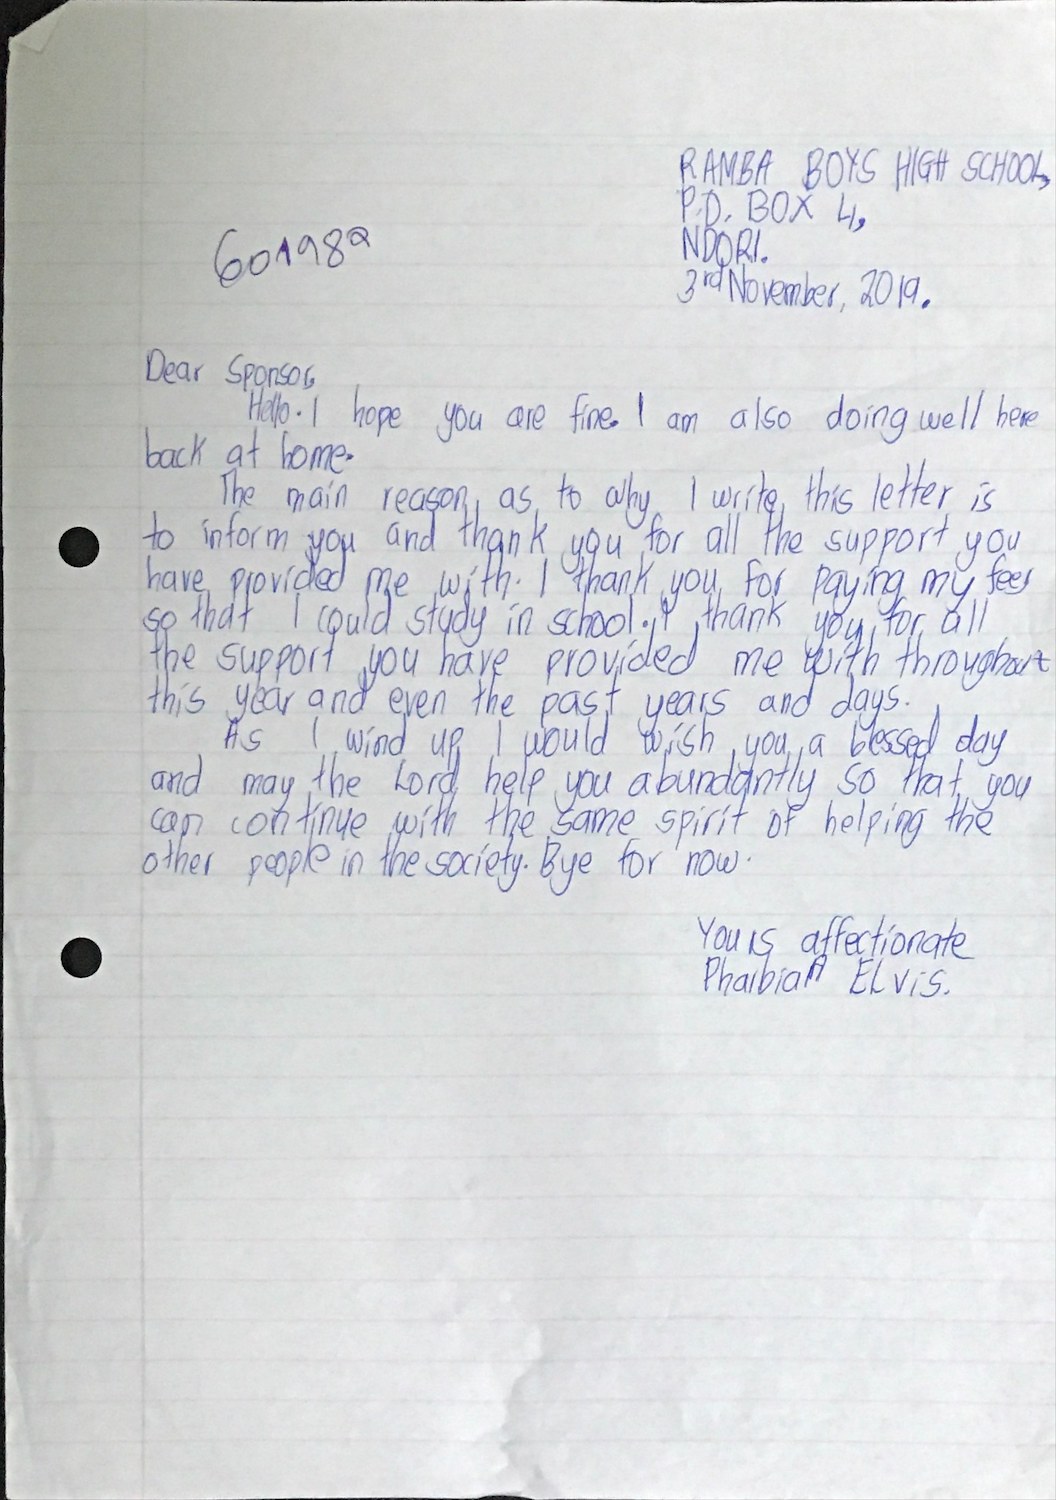 RAMBA BOYS HIGH SCHOOL,
P.O. BOX 4,
601982
NDORI.
3rd November, 2019.
Dear Sponsor,
Hello. I hope you are fine. I am also doing well here
back at home.
The main reason as to why I write this letter is
to inform you and thank you for all the support you
have provided me with. I thank you for paying my fees
so that I could study in school. I thank you for all
the support you have provided me with throughout
this year and even the past years and days.
As I wind up I would wish you a blessed day
and may the Lord help you abundantly so that you
can continue with the same spirit of helping the
other people in the society. Bye for now.
Yours affectionate
Pharbian ELVis.